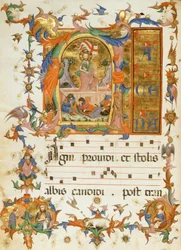 Agni providi. et stolis
albis candidi. post tran